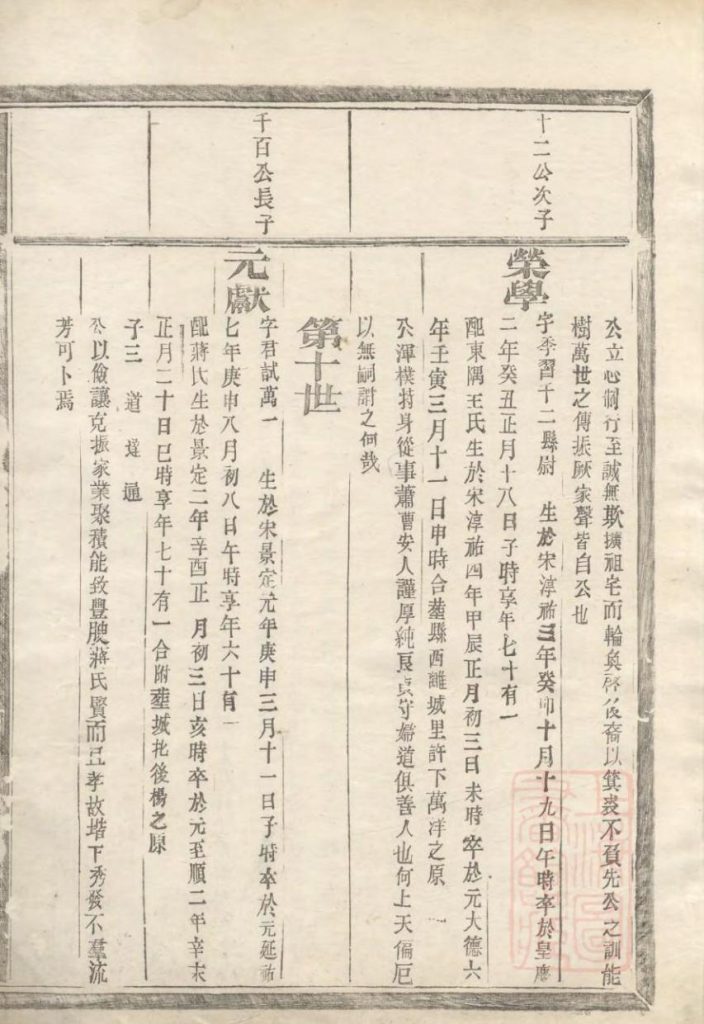 公立心制行至誠無欺擴祖宅而輪奐啓後裔以箕裘不負先公之訓能
樹萬世之傳振厥家聲皆自公也
十二公次子
榮學
字季習千二縣尉 生於宋淳祐三年癸卯十月十九日午時卒於皇慶
二年癸丑正月十八日子時享年七十有一
配東隅王氏生於宋淳祐四年甲辰正月初三日未時 卒於元大德六
年壬寅三月十一日申時合塟縣西離城里許下萬洋之原
公渾樸持身從事蕭曹安人謹厚純良貞守婦道俱善人也何上天偏厄
以無嗣謝之何哉
第十世
千百公長子
元獻
字君試萬一 生於宋景定元年庚申三月十一日子時卒於元延祐
七年庚申八月初八日午時享年六十有一
配蔣氏生於景定二年辛酉正月初三日亥時卒於元至順二年辛未
正月二十日巳時享年七十有一合附塟城北後楊之原
子三 道 達 通
公以儉讓克振家業聚積能致豐腴蔣氏賢而且孝故堦下秀發不羣流
芳可卜焉